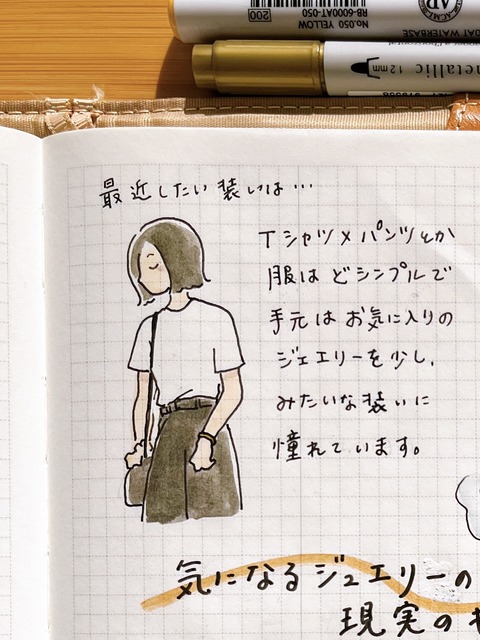 No.050 YELLOW
RB-6000AT-050
200
COAT WATERBASE
metallic 1.2mm
最近したい装いは…
Tシャツ×パンツとか
服はどシンプルで
手元はお気に入りの
ジュエリーを少し、
みたいな装いに
憧れています。
気になるジュエリーの
現実の